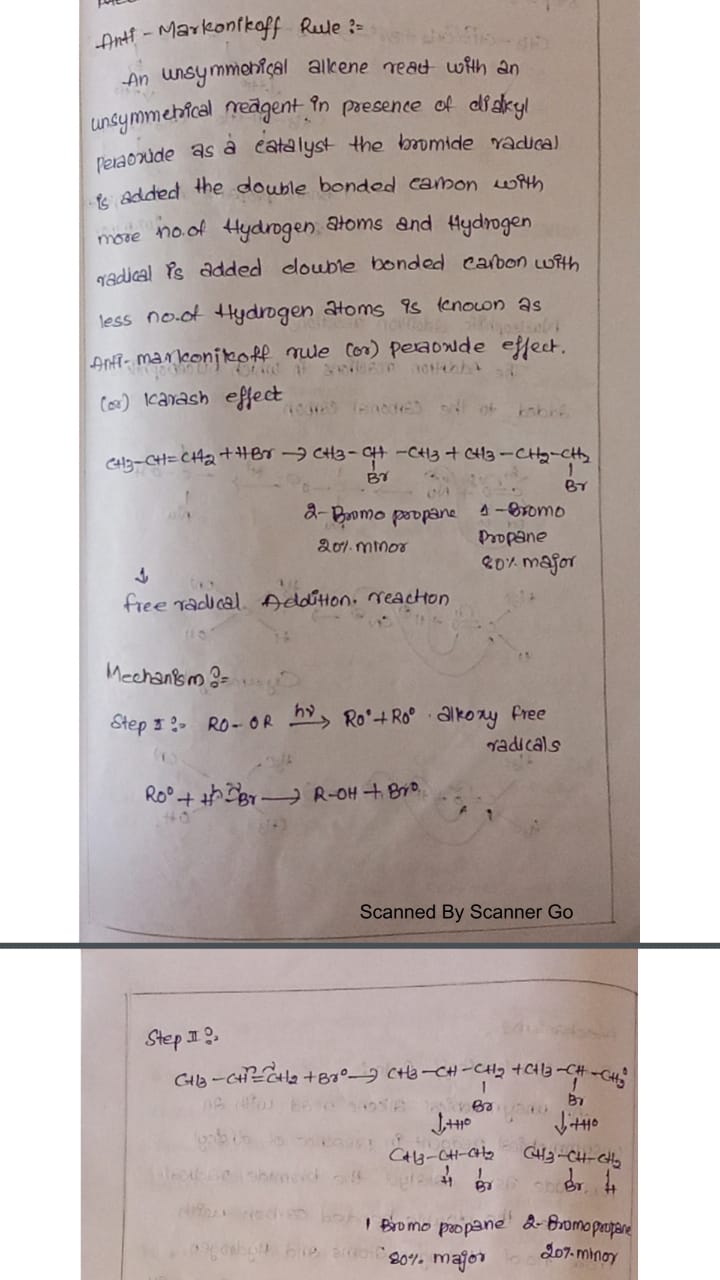 Anti - Markonikoff Rule :-
An unsymmetrical alkene react with an
unsymmetrical reagent in presence of dialkyl
peraoxide as a catalyst the bromide radical
is added the double bonded carbon with
more no.of Hydrogen atoms and Hydrogen
radical is added double bonded carbon with
less no.of Hydrogen atoms is known as
Anti-markonikoff rule (or) peraoxide effect.
(or) karash effect
CH3-CH=CH2 + HBr → CH3-CH-CH3 + CH3-CH2-CH2
Br Br
2-Bromo propane 1-Bromo
20% minor propane
80% major
↓
free radical Addition. reaction
Mechanism :-
Step I :- RO-OR hν→ RO° + RO° . alkoxy free
radicals
RO° + H-Br → R-OH + Br°
Scanned By Scanner Go
Step II :-
CH3-CH=CH2 + Br° → CH3-CH-CH2 + CH3-CH-CH2°
Br Br
↓+H° ↓+H°
CH3-CH-CH2 CH3-CH-CH2
H Br Br H
1 Bromo propane 2-Bromo propane
80% major 20% minor